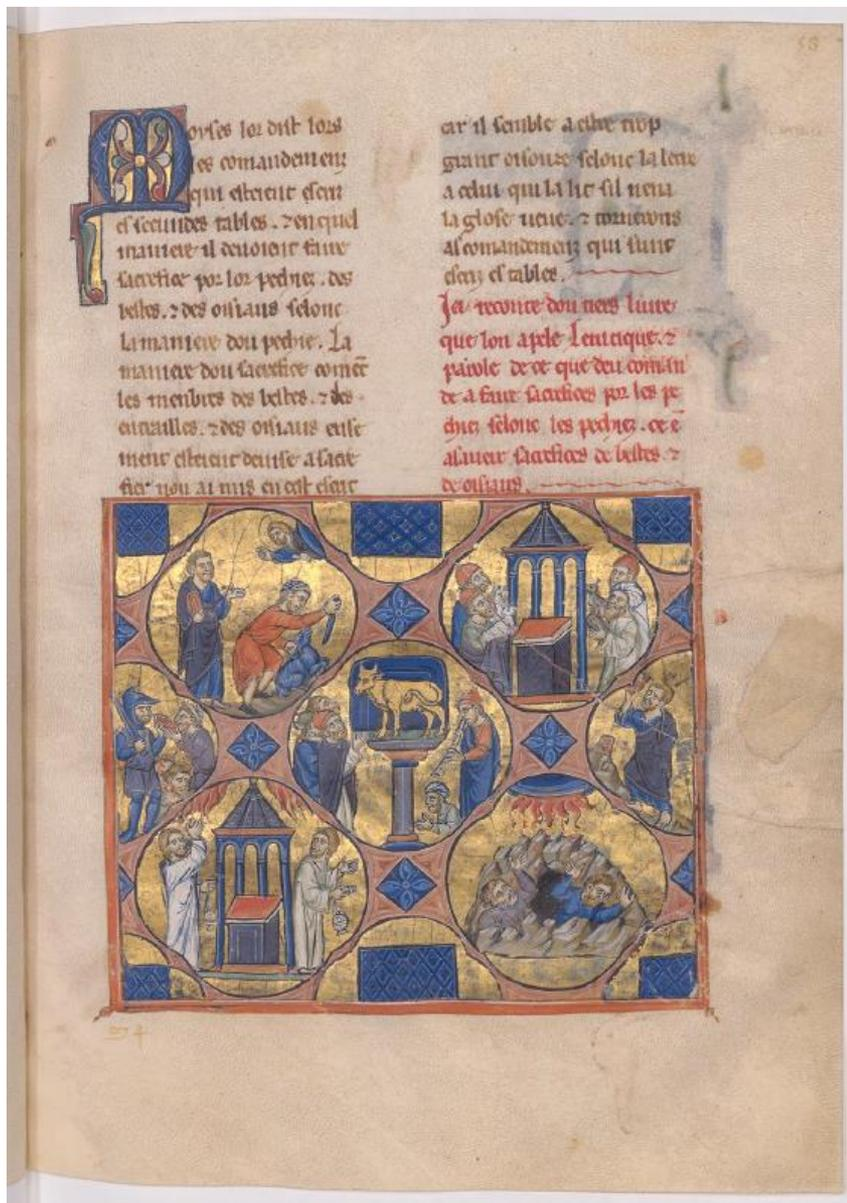 58
Moyses lor dist lors
les comandemenz
qui esteient escrit
es secundes tables. ⁊ en quel
maniere il devoient faire
sacrefice por lor pechiez. des
bestes. ⁊ des oisiaus selonc
la maniere dou pechie. La
maniere dou sacrefice coment
les menbres des bestes. ⁊ des
entrailles. ⁊ des oisiaus ense
ment esteient devise a sacre
fier non ai mis en cest escrit
car il semble a estre trop
grant oisouze selonc la letre
a celui qui la lit sil neua
la glose veue. ⁊ tornerons
as comandemenz qui sunt
escriz es tables.
Ici reconte dou tiers livre
que lon apele Leuitique. ⁊
parole de ce que deu coman
de a faire sacrefices por les pe
chiez selonc les pechiez. ce ē
asaueir sacrefices de bestes ⁊
de oisiaus.